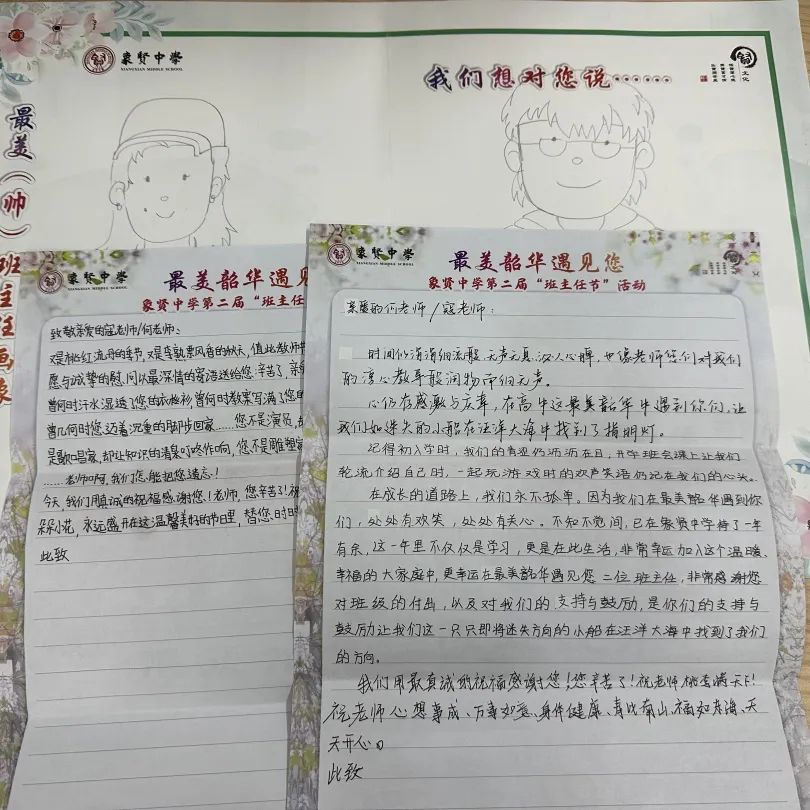 象贤中学
XIANGXIAN MIDDLE SCHOOL
我们想对您说……
文化
最美（帅）班主任画像
象贤中学
XIANGXIAN MIDDLE SCHOOL
最美韶华遇见
象贤中学第二届“班主任
致敬亲爱的寇老师/何老师：
又是桃红流丹的季节，又是季熟票风香的秋天，值此教师节
愿与诚挚的慰问以最深情的寄语送给您：辛苦了，亲
曾何时汗水湿透了您的衣格衫，曾何时教案写满了您的
曾几何时您迈着沉重的脚步回家……您不是演员，却
是歌唱家，却让知识的清泉叮咚作响，您不是雕塑家
……老师啊，我们怎能把您遗忘！
今天，我们用真诚的祝福感谢您！老师，您辛苦！祝
朵小花，永远盛开在这温馨美好的节日里，替您时时
此致
象贤中学
XIANGXIAN MIDDLE SCHOOL
最美韶华遇见您
象贤中学第二届“班主任节”活动
亲爱的何老师/寇老师：
时间似涓涓细流般无声无息沁人心脾，也像老师您们对我们
的谆心教导般润物而细无声。
心仍存感激与庆幸，在高中这最美韶华中遇到你们，让
我们如迷失的小船在汪洋大海中找到了指明灯。
记得初入学时，我们的青涩仍历历在目，开学班会课上让我们
轮流介绍自己时，一起玩游戏时的欢声笑语仍记在我们的心头。
在成长的道路上，我们永不孤单。因为我们在最美韶华遇到你
们，处处有欢笑，处处有关心。不知不觉间，已在象贤中学待了一年
有余，这一年里不仅仅是学习，更是在此生活，非常幸运加入这个温暖、
幸福的大家庭中，更幸运在最美韶华遇见您二位班主任，非常感谢您
对班级的付出，以及对我们的支持与鼓励，是你们的支持与
鼓励让我们这一只只即将迷失方向的小船在汪洋大海中找到了我们
的方向。
我们用最真诚的祝福感谢您！您辛苦了！祝老师桃李满天下！
祝老师心想事成、万事如意、身体健康、寿比南山、福如东海、天
天开心。
此致